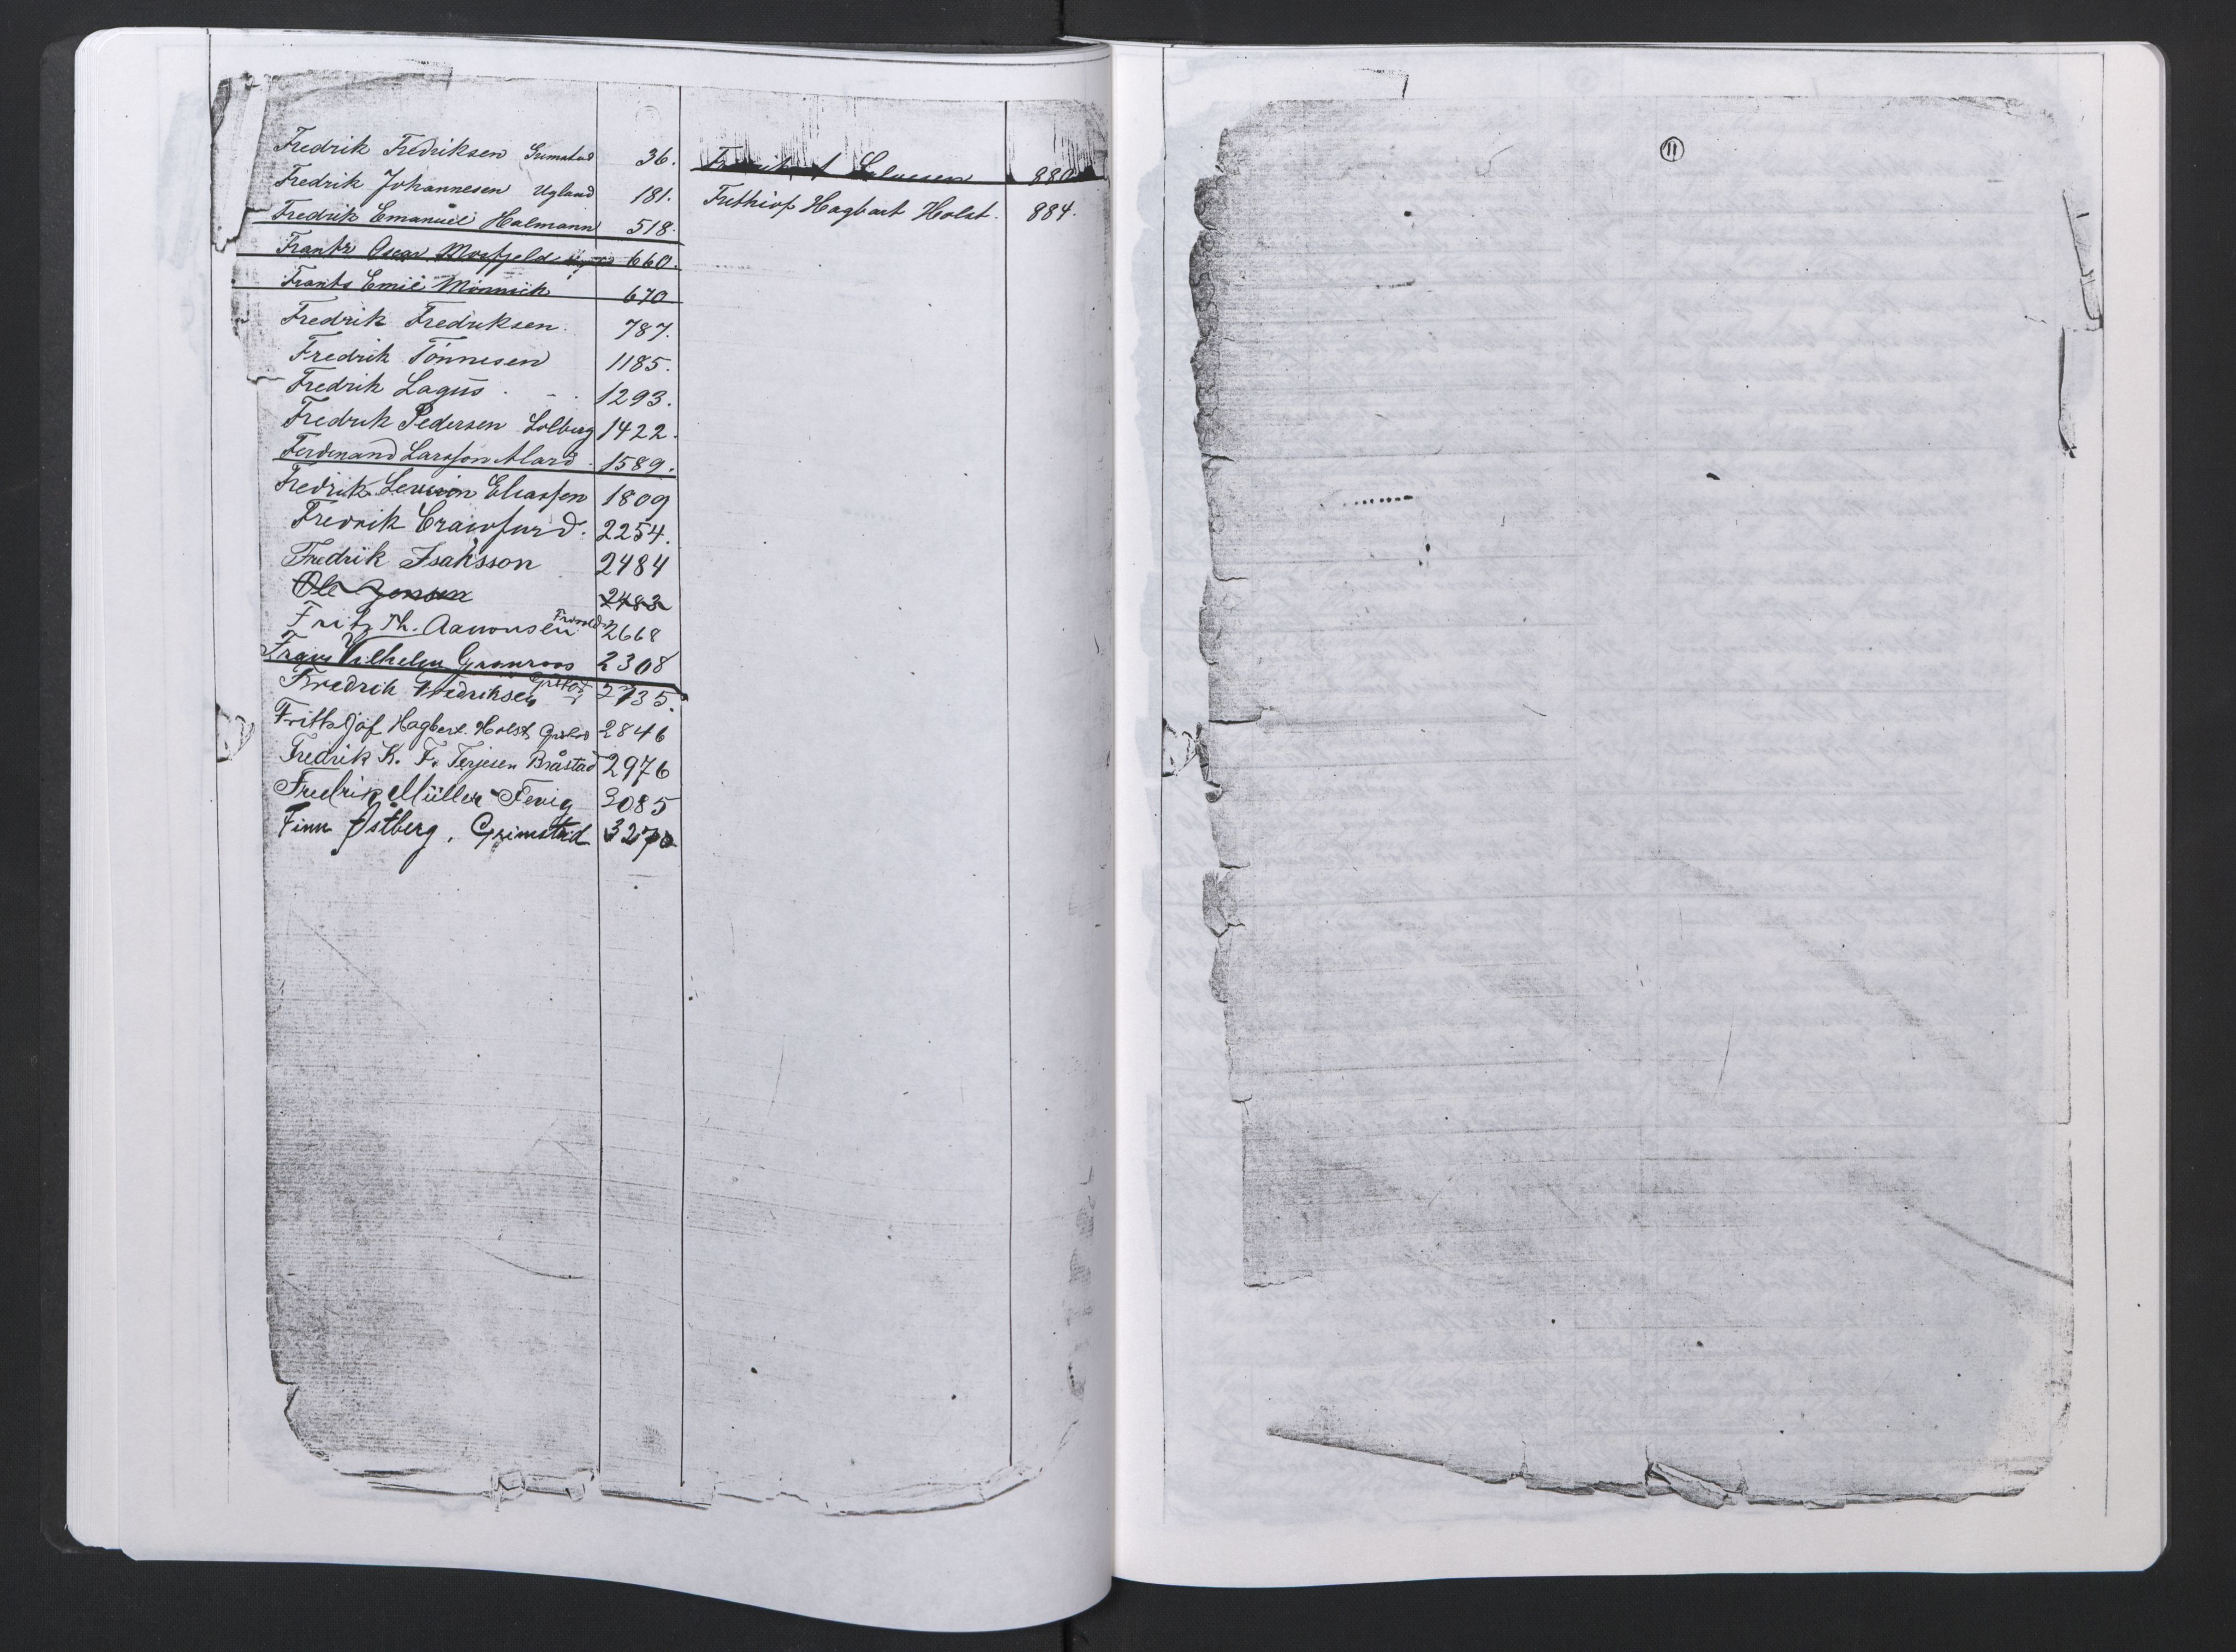 Fredrik Fredriksen Grimstad 36.
Fredrik Johannesen Ugland 181.
Fredrik Emanuel Halmann 518.
Frantz Oscar 660.
Frants Emil Minnuik 670
Fredrik Fredriksen. 787.
Fredrik Tönnesen 1185.
Fredrik Lagus 1293.
Fredrik Pedersen Solberg 1422.
Ferdinand Larsson Alard 1589.
Fredrik Eliassen 1809
Fredrik Crawfurd. 2254.
Fredrik Isaksson 2484
Ole Jensen 2483
Fritz Th. Aanonsen 2668
Wilhelm Granroos 2308
Fredrik Fredriksen Grstad 2735.
Hagbert Holst Grstad 2846
Fredrik K. F. Terjesen Bråstad 2976
Fredrik Müller Fevig 3085
Finn Østberg, Grimstad 3270
880
Frithiof Hagbart Holst. 884.
11